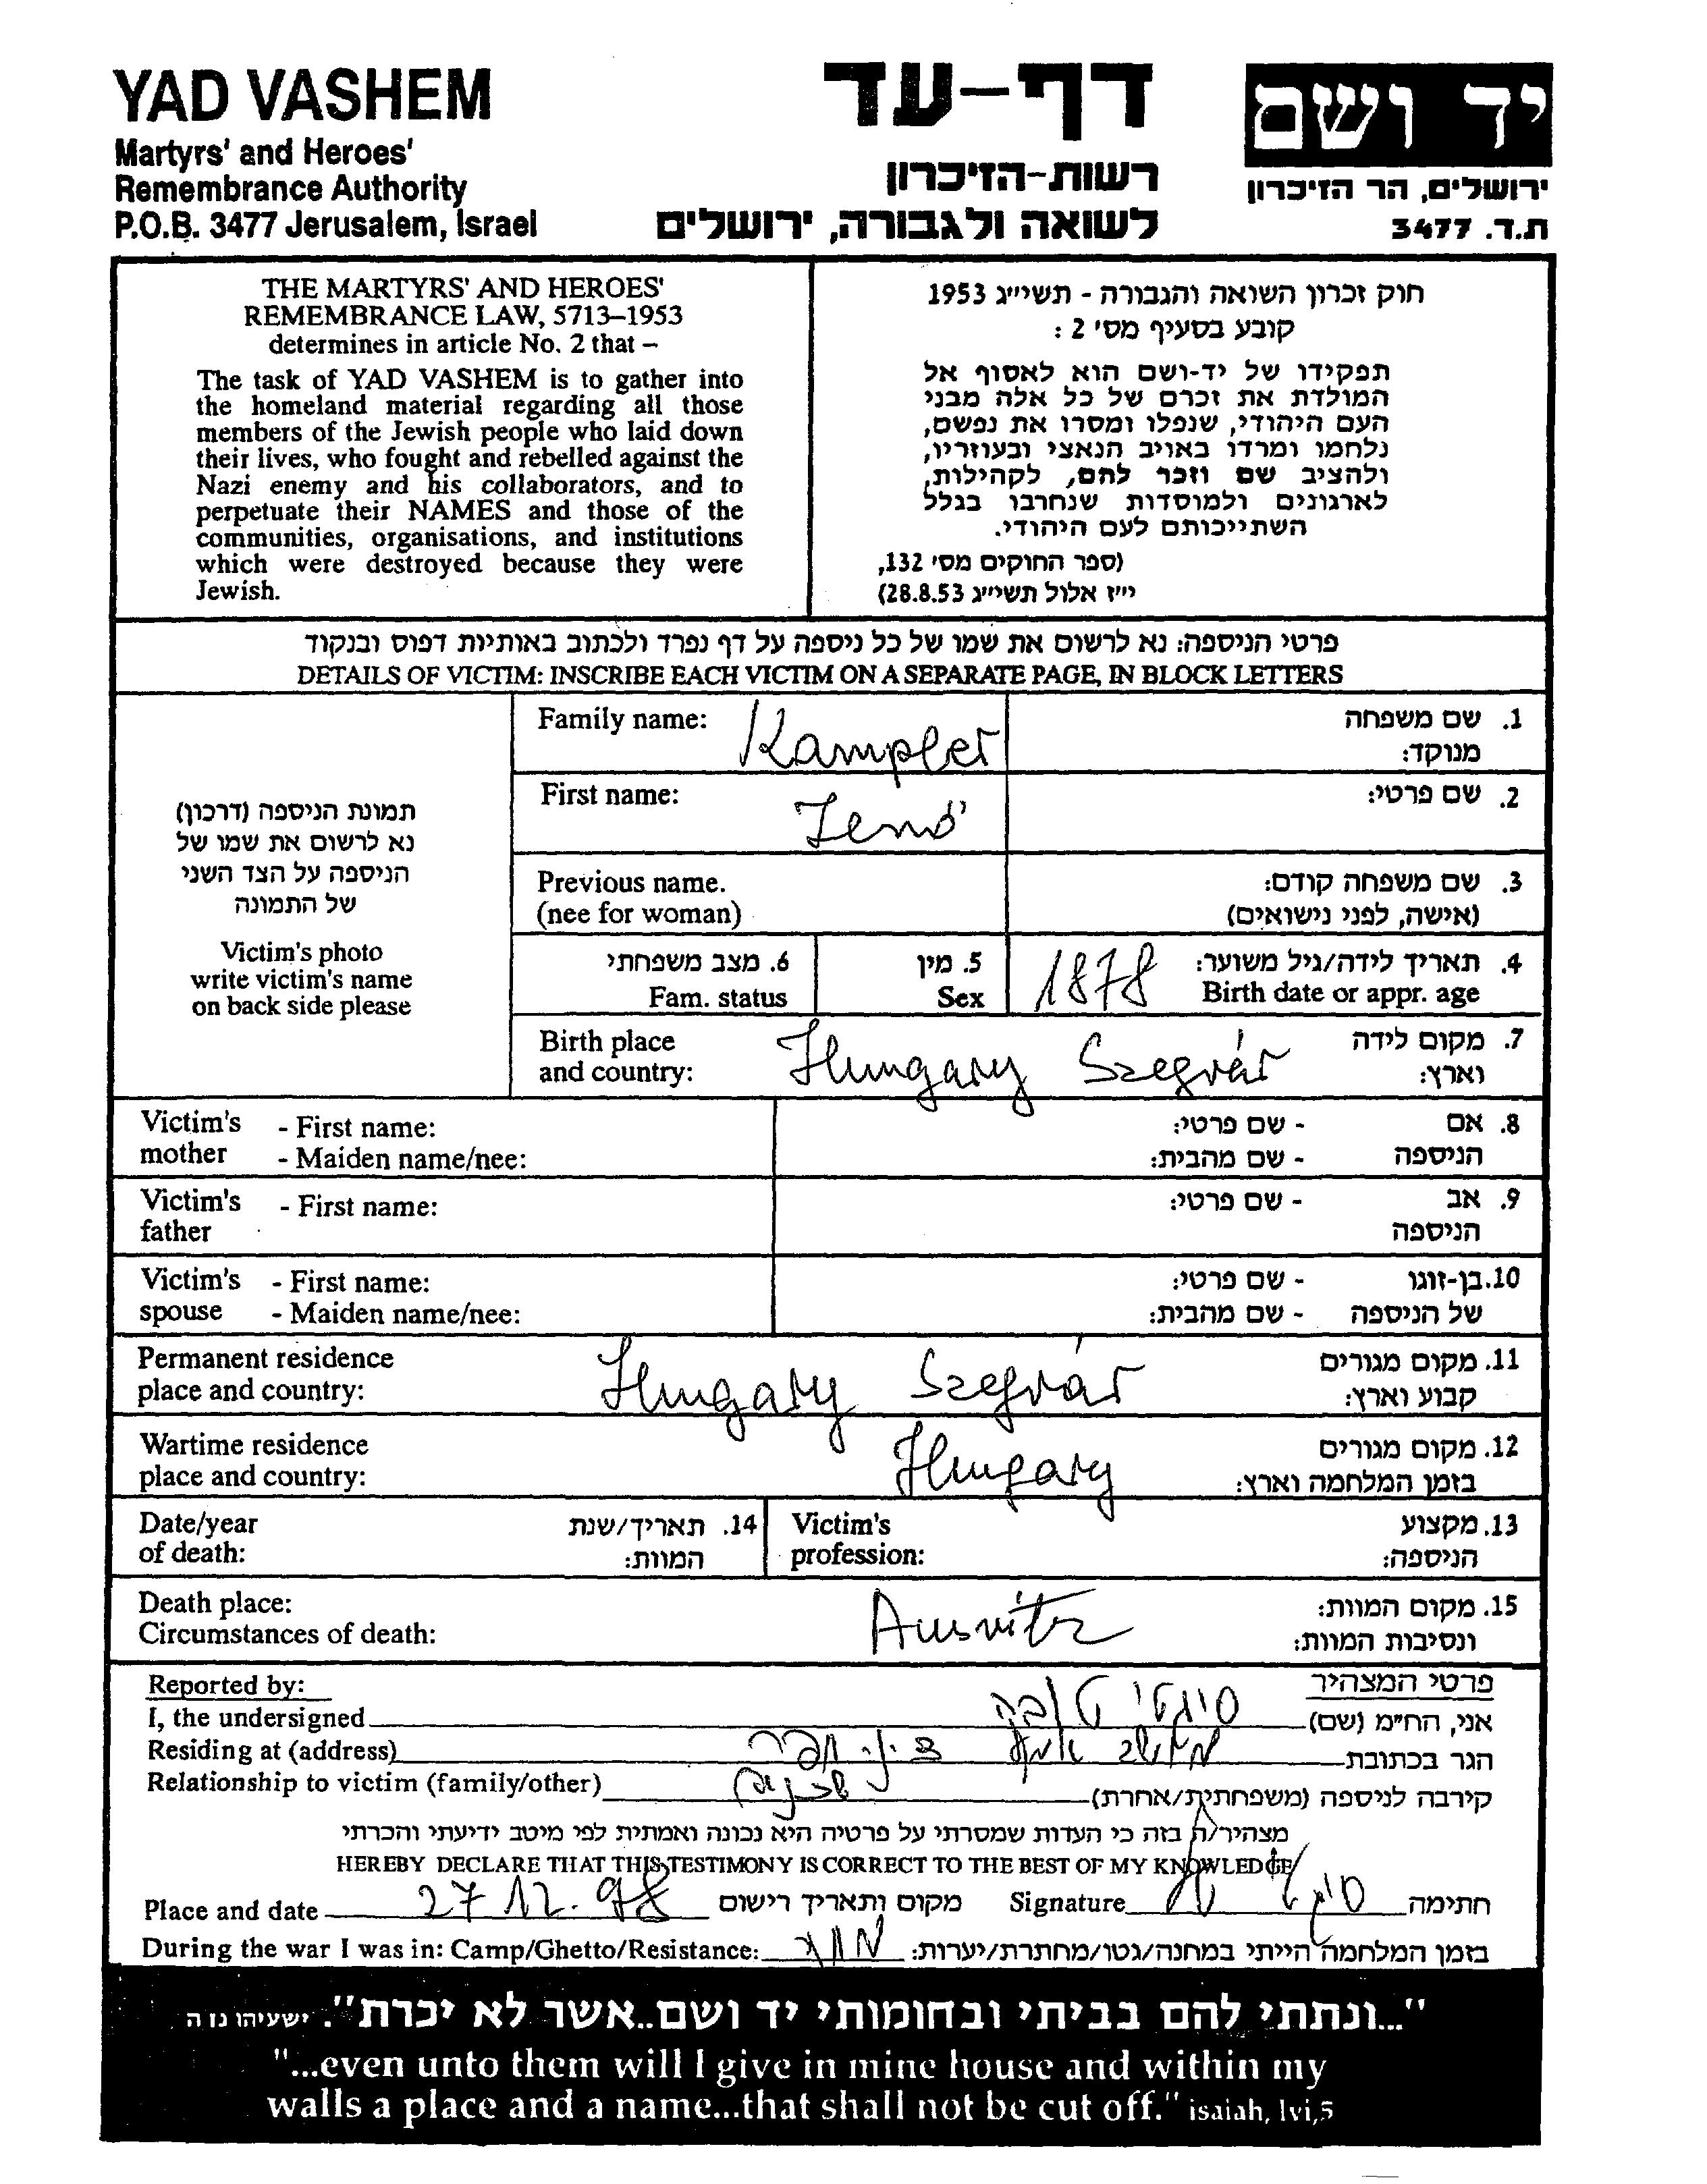 YAD VASHEM
Martyrs' and Heroes'
Remembrance Authority
P.O.B. 3477 Jerusalem, Israel
דף-עד
רשות-הזיכרון
לשואה ולגבורה, ירושלים
יד ושם
ירושלים, הר הזיכרון
ת.ד. 3477
THE MARTYRS' AND HEROES'
REMEMBRANCE LAW, 5713–1953
determines in article No. 2 that –
The task of YAD VASHEM is to gather into
the homeland material regarding all those
members of the Jewish people who laid down
their lives, who fought and rebelled against the
Nazi enemy and his collaborators, and to
perpetuate their NAMES and those of the
communities, organisations, and institutions
which were destroyed because they were
Jewish.
חוק זכרון השואה והגבורה - תשי״ג 1953
קובע בסעיף מס׳ 2 :
תפקידו של יד-ושם הוא לאסוף אל
המולדת את זכרם של כל אלה מבני
העם היהודי, שנפלו ומסרו את נפשם,
נלחמו ומרדו באויב הנאצי ובעוזריו,
ולהציב שם וזכר להם, לקהילות,
לארגונים ולמוסדות שנחרבו בגלל
השתייכותם לעם היהודי.
(ספר החוקים מס׳ 132,
י״ז אלול תשי״ג 28.8.53)
פרטי הניספה: נא לרשום את שמו של כל ניספה על דף נפרד ולכתוב באותיות דפוס ובנקוד
DETAILS OF VICTIM: INSCRIBE EACH VICTIM ON A SEPARATE PAGE, IN BLOCK LETTERS
תמונת הניספה (דרכון)
נא לרשום את שמו של
הניספה על הצד השני
של התמונה
Victim's photo
write victim's name
on back side please
Family name: Kampler 1. שם משפחה
מנוקד:
First name: Jenő 2. שם פרטי:
Previous name. 3. שם משפחה קודם:
(nee for woman) (אישה, לפני נישואים)
6. מצב משפחתי 5. מין 1878 4. תאריך לידה/גיל משוער:
Fam. status Sex Birth date or appr. age
Birth place 7. מקום לידה
and country: Hungary Szegvár וארץ:
Victim's - First name: - שם פרטי: 8. אם
mother - Maiden name/nee: - שם מהבית: הניספה
Victim's - First name: - שם פרטי: 9. אב
father הניספה
Victim's - First name: - שם פרטי: 10. בן-זוגו
spouse - Maiden name/nee: - שם מהבית: של הניספה
Permanent residence 11. מקום מגורים
place and country: Hungary Szegvár קבוע וארץ:
Wartime residence 12. מקום מגורים
place and country: Hungary בזמן המלחמה וארץ:
Date/year 14. תאריך/שנת Victim's 13. מקצוע
of death: המוות: profession: הניספה:
Death place: Ausvitz 15. מקום המוות:
Circumstances of death: ונסיבות המוות:
Reported by: פרטי המצהיר
I, the undersigned טובה אני, הח״מ (שם)
Residing at (address) הגר בכתובת
Relationship to victim (family/other) קירבה לניספה (משפחתית/אחרת)
מצהיר/ה בזה כי העדות שמסרתי על פרטיה היא נכונה ואמתית לפי מיטב ידיעתי והכרתי
HEREBY DECLARE THAT THIS TESTIMONY IS CORRECT TO THE BEST OF MY KNOWLEDGE
Place and date 27 12. 98 מקום ותאריך רישום Signature חתימה
During the war I was in: Camp/Ghetto/Resistance: בזמן המלחמה הייתי במחנה/גטו/מחתרת/יערות:
"...ונתתי להם בביתי ובחומותי יד ושם..אשר לא יכרת". ישעיהו נו ה
"...even unto them will I give in mine house and within my
walls a place and a name...that shall not be cut off." isaiah, lvi,5